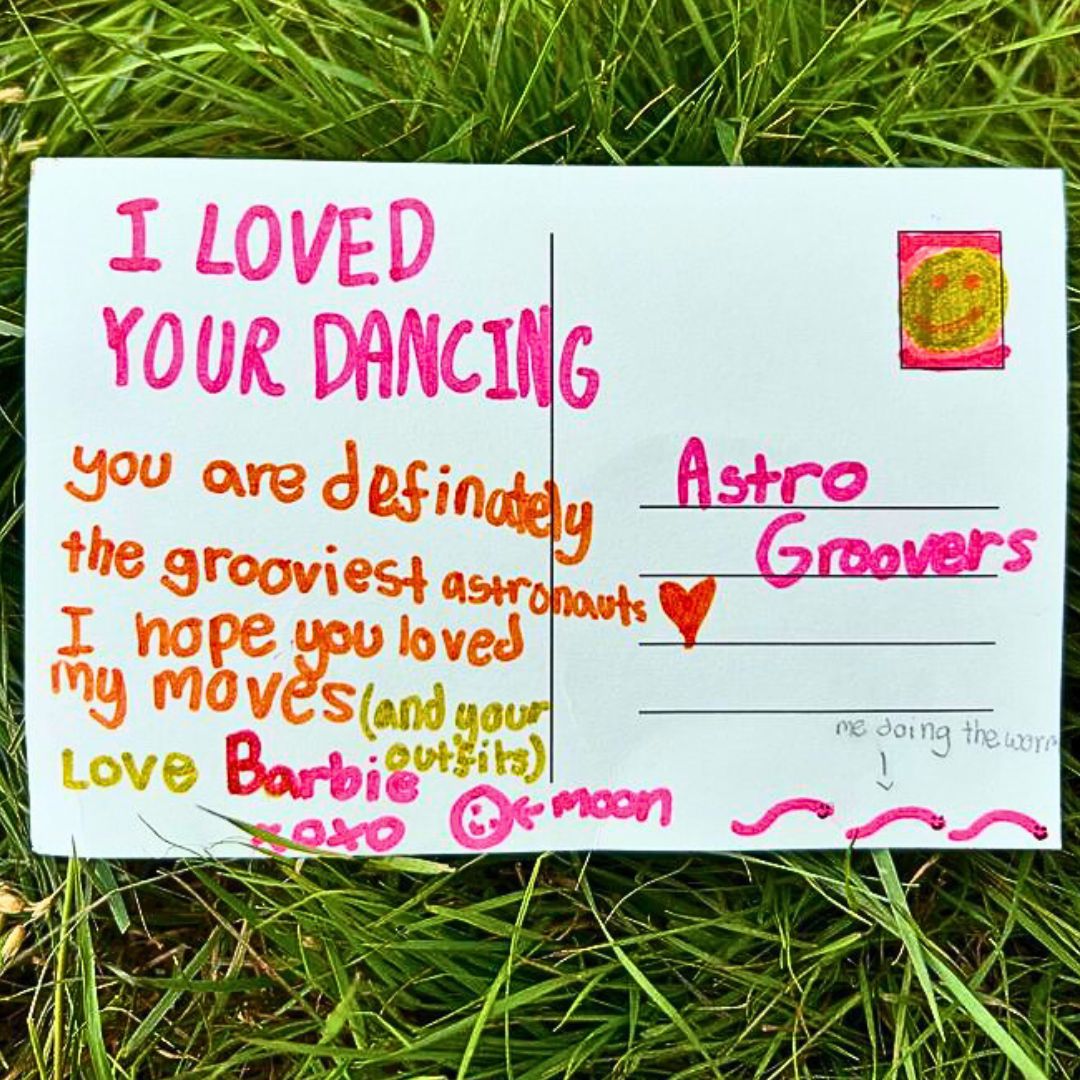 I LOVED
YOUR DANCING
you are definately
the grooviest astronauts
I hope you loved
my moves (and your
outfits)
Love Barbie
xoxo
← moon
Astro
Groovers
me doing the worm